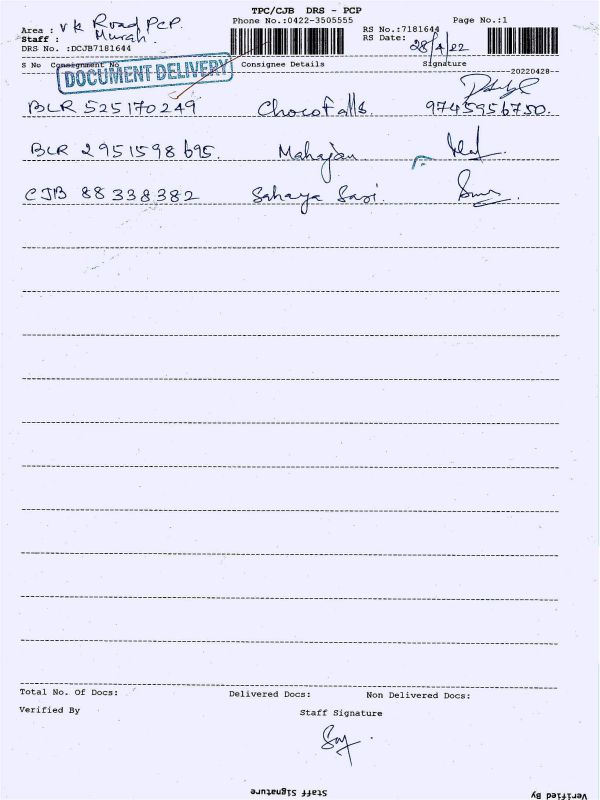 TPC/CJB DRS - PCP
Area : VK Road PCP Phone No.:0422-3505555 RS No.:7181644 Page No.:1
Staff : Murali RS Date: 28/4/22
DRS No. :DCJB7181644
S No Consignment No Consignee Details Signature
DOCUMENT DELIVERY
--20220428--
BLR 525170249 Chocofalls 9745956750.
BLR 2951598695. Mahajan
CJB 88338382 Sahaya Sasi.
Total No. Of Docs: Delivered Docs: Non Delivered Docs:
Verified By Staff Signature
Staff Signature Verified By